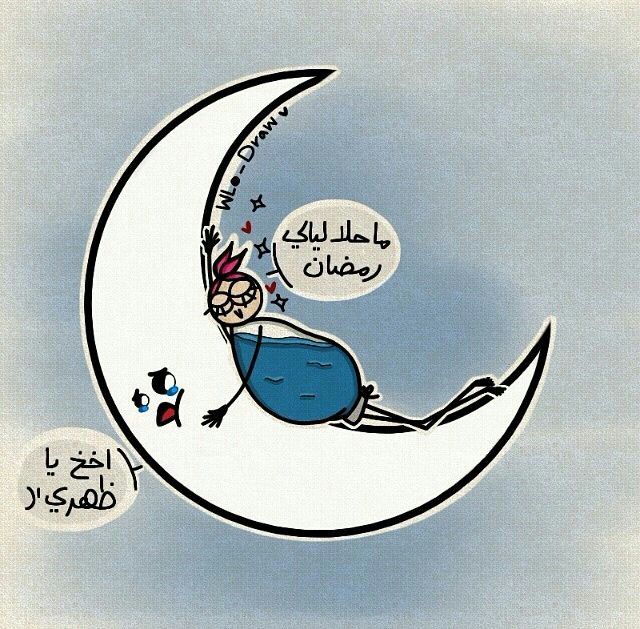 WLo-Draw ♥
ما حلا ليالي
رمضان
اخخ يا
ظهري :(